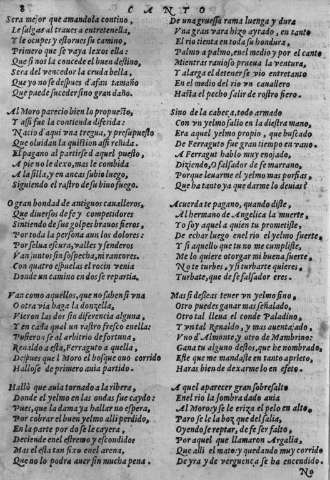 8 CANTO
Sera mejor que amandola contino,
Le salgas al traues a entretenella,
Y le ocupes y estorues su camino,
Primero que se vaya lexos ella:
Que si nos la concede el buen destino,
Sera del vencedor la cruda bella,
Que yo no se despues d'afan tamaño
Que puede succedersino gran daño.
Al Moro parecio bien lo propuesto,
Y assi fue la contienda diferida:
Nacio d'aqui vna tregua, y presupuesto
Que oluidan la question assi reñida.
El pagano al partirse d'aquel puesto,
A pie no le dexo, mas le combida
A la silla, y en ancas subio luego,
Siguiendo el rastro de su biuo fuego.
O gran bondad de antiguos caualleros,
Que diuersos de fe y competidores
Sintiendo de sus golpes brauos fieros,
Por toda la persona aun los dolores:
Por selua escura, valles y senderos
Van juntos sin sospecha, ni rancores.
Con quatro espuelas el rocin venia
Donde vn camino en dos se repartia.
Van como aquellos, que no saben si vna
O otra via haze la donzella,
Vieron las dos sin diferencia alguna,
Y en cada qual vn rastro fresco enella:
Pusieron se al arbitrio de fortuna,
Renaldo a esta, Ferraguto a aquella,
Despues que l Moro el bosque vno corrido
Hallose de primero auia partido.
Hallò que auia tornado a la ribera,
Donde el yelmo en las ondas fue caydo:
Pues, que la dama ya hallar no espera,
Por cobrar el buen yelmo alli perdido,
En la parte por do se le cayera,
Deciende enel estremo y escondido:
Mas el esta tan fixo enel arena,
Que no lo podra auer sin mucha pena.
De vna gruessa rama luenga y dura
Vna gran vara hizo ayrado, en tanto
El rio tienta en toda su hondura,
Palmo a palmo, en el medio y por el canto
Mientras rauioso prueua la ventura,
Y alarga el detener se vio entretanto
En el medio del rio vn cauallero
Hasta el pecho salir de rostro fiero.
Sino de la cabeça, todo armado
Con vn yelmo fallo en la diestra mano,
Era aquel yelmo propio, que buscado
De Ferraguto fue gran tiempo en vano.
A Ferragut hablo muy enojado,
Diziendo, O falsador de fe marrano,
Porque leuarme el yelmo mas porfias,
Que ha tanto ya que darme lo deuias?
Acuerda te pagano, quando diste,
Al hermano de Angelica la muerte,
Yo soy aquel a quien tu prometiste,
De echar luego enel rio el yelmo fuerte,
Y si aquello que tu no me cumpliste,
Me lo quiere otorgar mi buena suerte
No te turbes, y si turbarte quieres,
Turbate, que de se falsador eres.
Mas si desseas tener vn yelmo fino,
Otro puedes ganar mas señalado,
Otro tal lleua el conde Paladino,
Y vn tal Renaldo, y mas auentajado,
Vno d'Almonte, y otro de Mambrino:
Gana tu alguno destos, que he nombrado,
Este que me mandaste en tanto aprieto,
Haras bien de dexarme lo en efeto.
A quel aparecer gran sobresalto
Enel rio la sombra dado auia
Al Moro, y se le eriza el pelo en alto
Paro se le la boz que del salia,
Oyendose reptar, de fe ser falto,
Por aquel que llamaron Argalia,
Que alli el mato: y quedando muy corrido
De yra y de verguença se ha encendido.
No